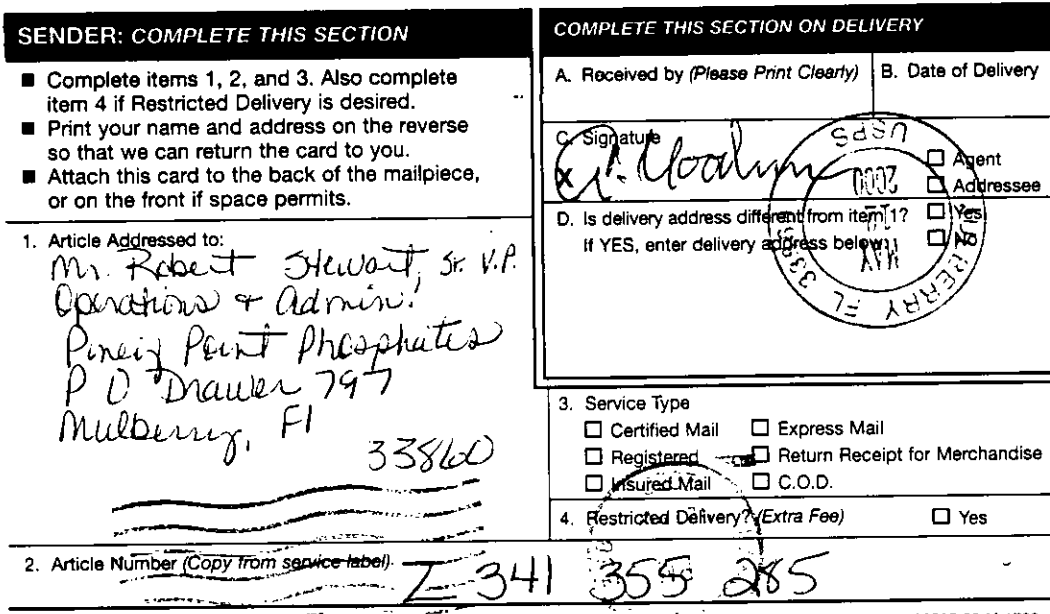 SENDER: COMPLETE THIS SECTION
■ Complete items 1, 2, and 3. Also complete
item 4 if Restricted Delivery is desired.
■ Print your name and address on the reverse
so that we can return the card to you.
■ Attach this card to the back of the mailpiece,
or on the front if space permits.
1. Article Addressed to:
Mr. Robert Stewart, Sr. V.P.
Operations & Admin.
Piney Point Phosphates
P O Drawer 797
Mulberry, Fl
33860
2. Article Number (Copy from service label)
Z 341 355 285
COMPLETE THIS SECTION ON DELIVERY
A. Received by (Please Print Clearly)
B. Date of Delivery
C. Signature
X
☐ Agent
☐ Addressee
D. Is delivery address different from item 1? ☐ Yes
If YES, enter delivery address below: ☐ No
USPS
MAY
2000
MULBERRY FL 338
3. Service Type
☐ Certified Mail ☐ Express Mail
☐ Registered ☐ Return Receipt for Merchandise
☐ Insured Mail ☐ C.O.D.
4. Restricted Delivery? (Extra Fee) ☐ Yes